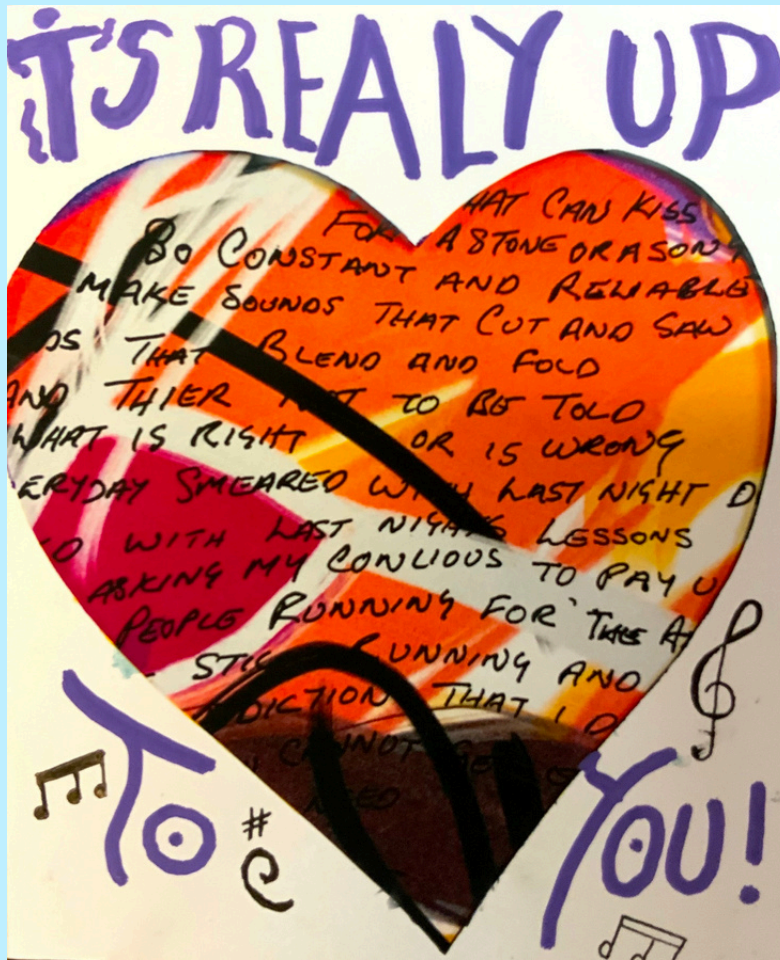 IT'S REALY UP
FOR HAT CAN KISS
BO CONSTANT A STONE OR A SONG
MAKE SOUNDS AND RELIABLE
THAT CUT AND SAW
DS THAT BLEND AND FOLD
AND THIER NOT TO BE TOLD
WHAT IS RIGHT OR IS WRONG
ERYDAY SMEARED WITH LAST NIGHT D
O WITH LAST NIGHTS LESSONS
ASKING MY CONLIOUS TO PAY U
PEOPLE RUNNING FOR THE A
STILL RUNNING AND
DICTION THAT I D
CANNOT GE
NEED
TO YOU!